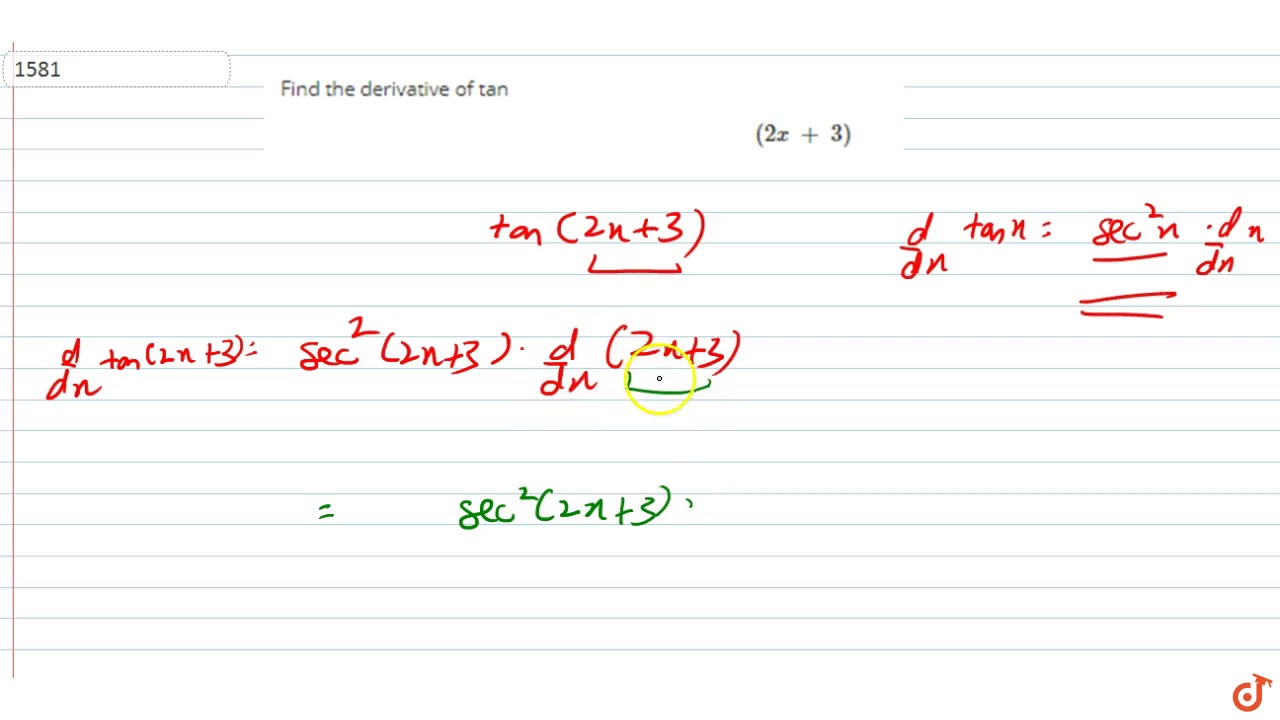 1581
Find the derivative of tan
(2x + 3)
tan (2x+3)
d/dx tan x = sec²x · d/dx x
d/dx tan(2x+3) = sec²(2x+3) · d/dx (2x+3)
= sec²(2x+3) ·